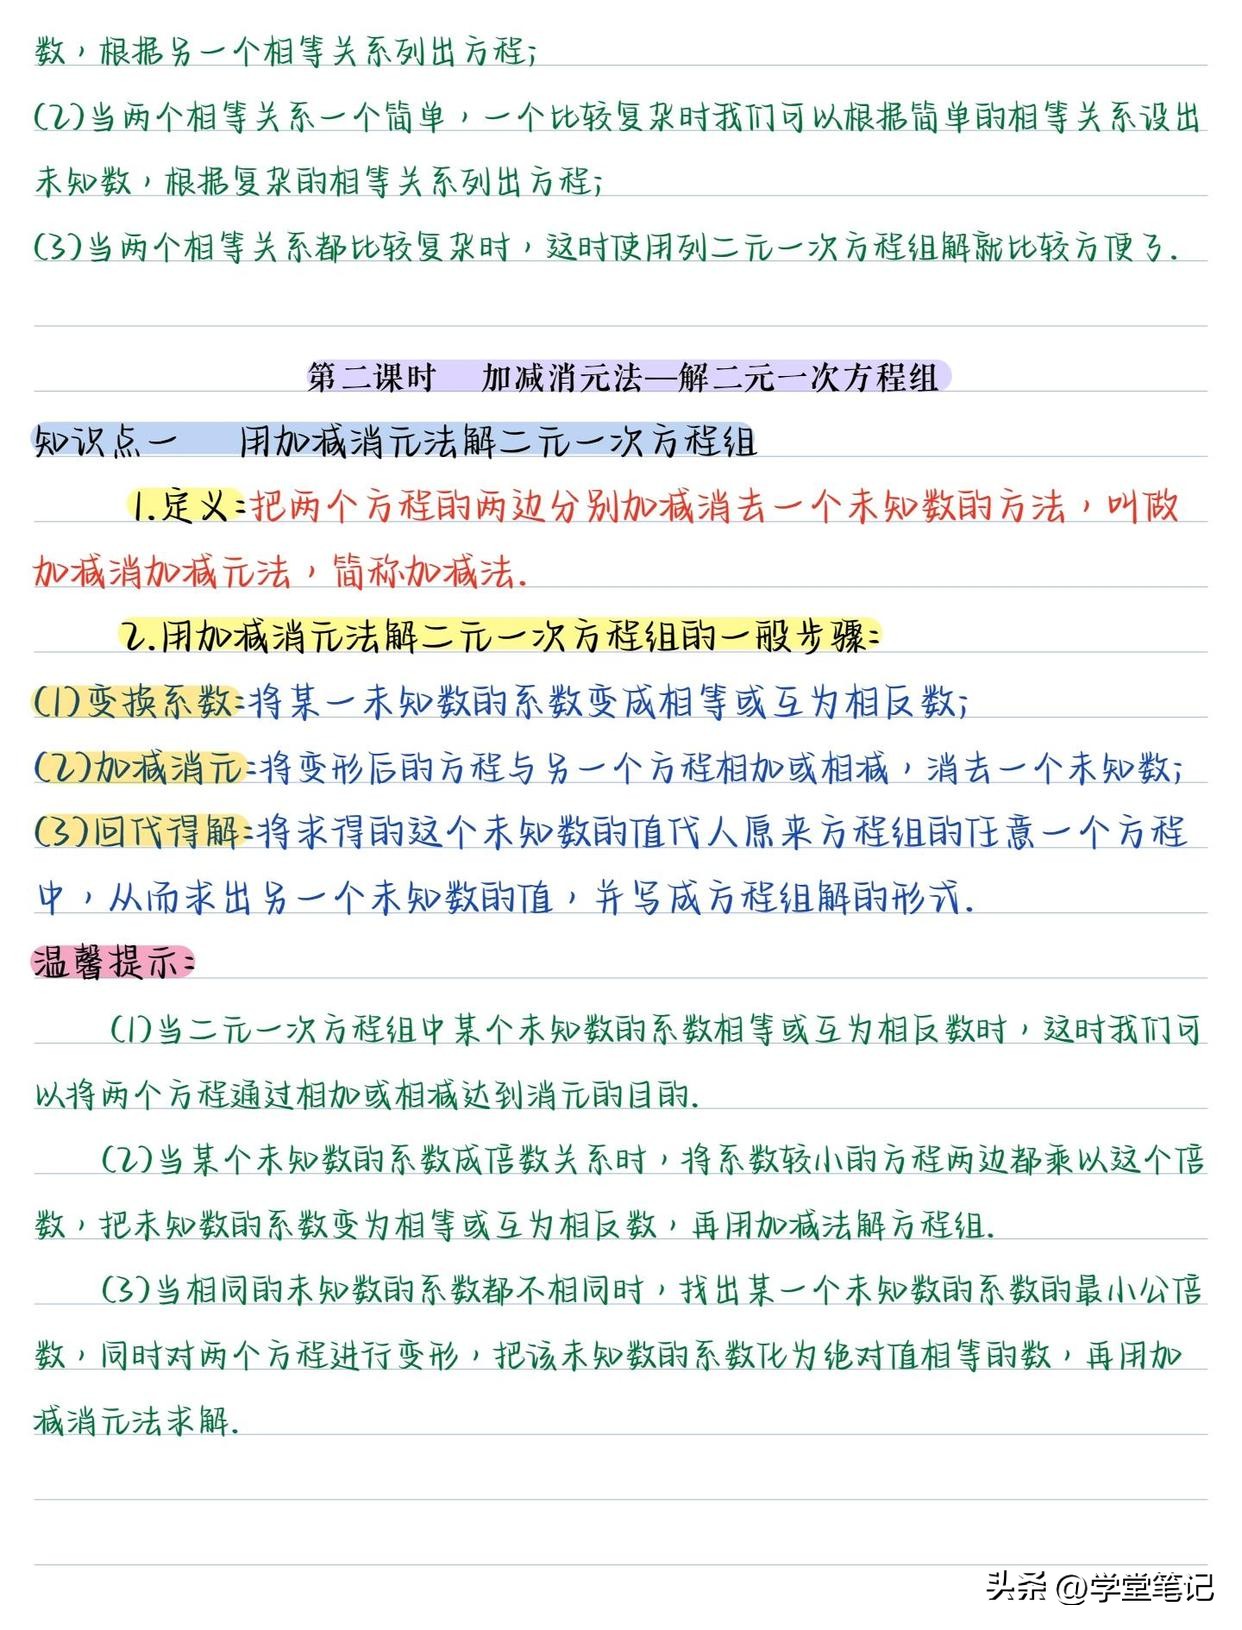 数，根据另一个相等关系列出方程;
(2)当两个相等关系一个简单，一个比较复杂时我们可以根据简单的相等关系设出
未知数，根据复杂的相等关系列出方程;
(3)当两个相等关系都比较复杂时，这时使用列二元一次方程组解就比较方便了.
第二课时 加减消元法—解二元一次方程组
知识点一 用加减消元法解二元一次方程组
1.定义:把两个方程的两边分别加减消去一个未知数的方法，叫做
加减消加减元法，简称加减法.
2.用加减消元法解二元一次方程组的一般步骤:
(1)变换系数:将某一未知数的系数变成相等或互为相反数;
(2)加减消元:将变形后的方程与另一个方程相加或相减，消去一个未知数;
(3)回代得解:将求得的这个未知数的值代人原来方程组的任意一个方程
中，从而求出另一个未知数的值，并写成方程组解的形式.
温馨提示:
(1)当二元一次方程组中某个未知数的系数相等或互为相反数时，这时我们可
以将两个方程通过相加或相减达到消元的目的.
(2)当某个未知数的系数成倍数关系时，将系数较小的方程两边都乘以这个倍
数，把未知数的系数变为相等或互为相反数，再用加减法解方程组.
(3)当相同的未知数的系数都不相同时，找出某一个未知数的系数的最小公倍
数，同时对两个方程进行变形，把该未知数的系数化为绝对值相等的数，再用加
减消元法求解.
头条 @学堂笔记